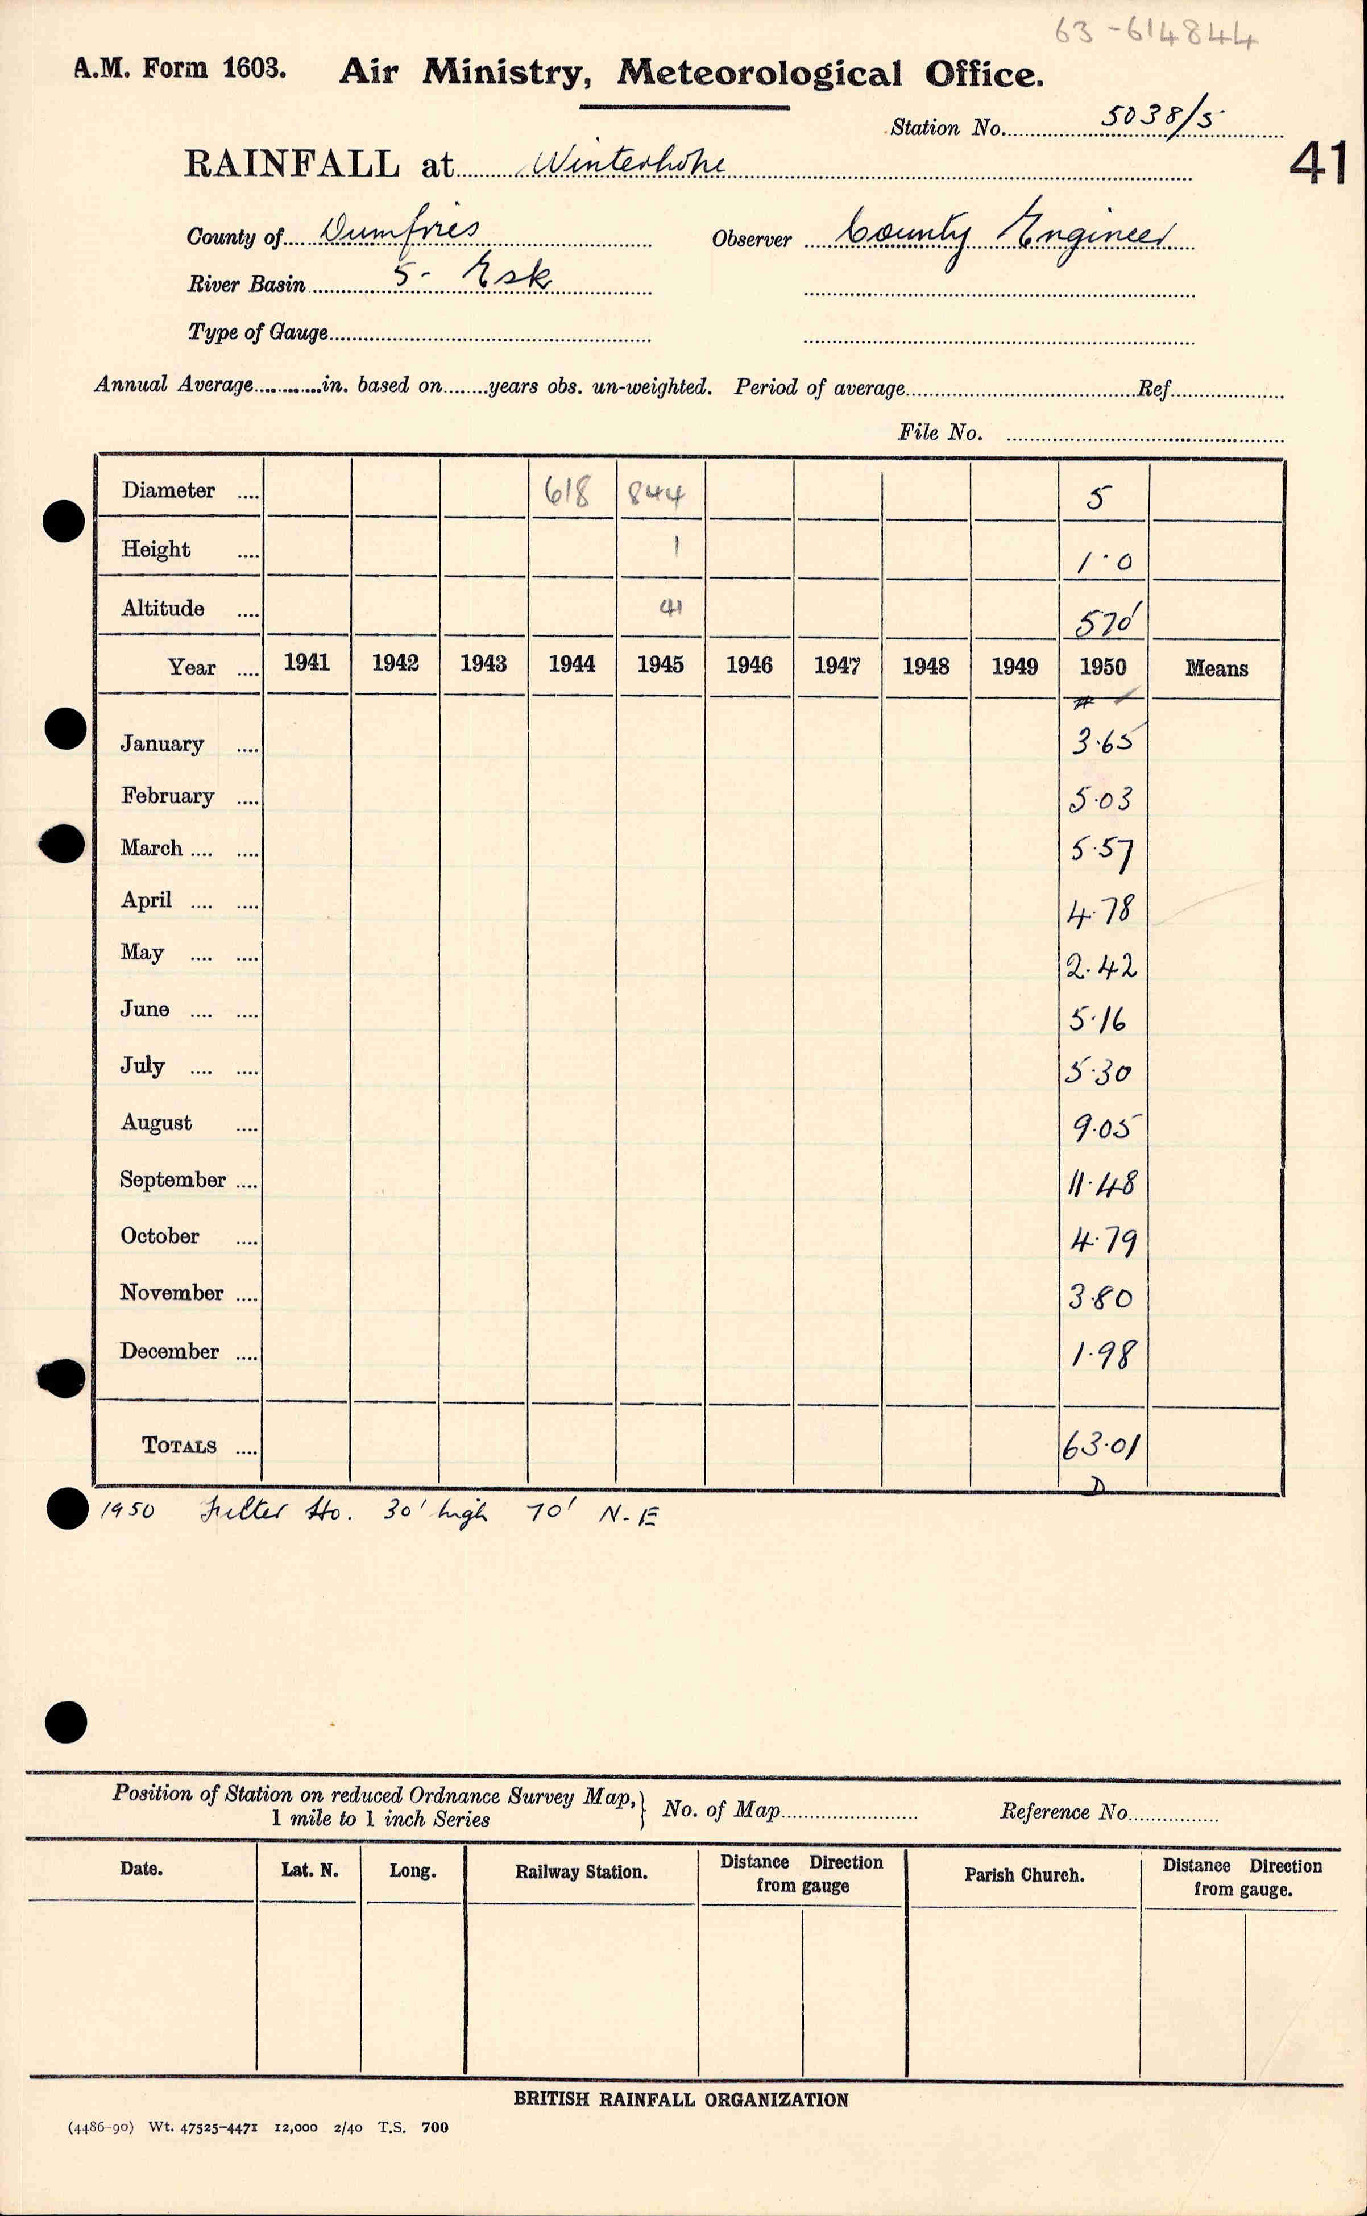 63-614844
A.M. Form 1603. Air Ministry, Meteorological Office.
Station No. 5038/5
41
RAINFALL at Winterhope
County of Dumfries Observer County Engineer
River Basin 5- Esk
Type of Gauge
Annual Average in. based on years obs. un-weighted. Period of average Ref.
File No.
Diameter 618 844 5
Height 1 1·0
Altitude 41 570'
Year 1941 1942 1943 1944 1945 1946 1947 1948 1949 1950 Means
January 3·65
February 5·03
March 5·57
April 4·78
May 2·42
June 5·16
July 5·30
August 9·05
September 11·48
October 4·79
November 3·80
December 1·98
TOTALS 63·01
D
1950 Filter Ho. 30' high 70' N-E
Position of Station on reduced Ordnance Survey Map,
1 mile to 1 inch Series } No. of Map Reference No.
Date. Lat. N. Long. Railway Station. Distance Direction from gauge Parish Church. Distance Direction from gauge.
BRITISH RAINFALL ORGANIZATION
(4486-90) Wt. 47525-4471 12,000 2/40 T.S. 700